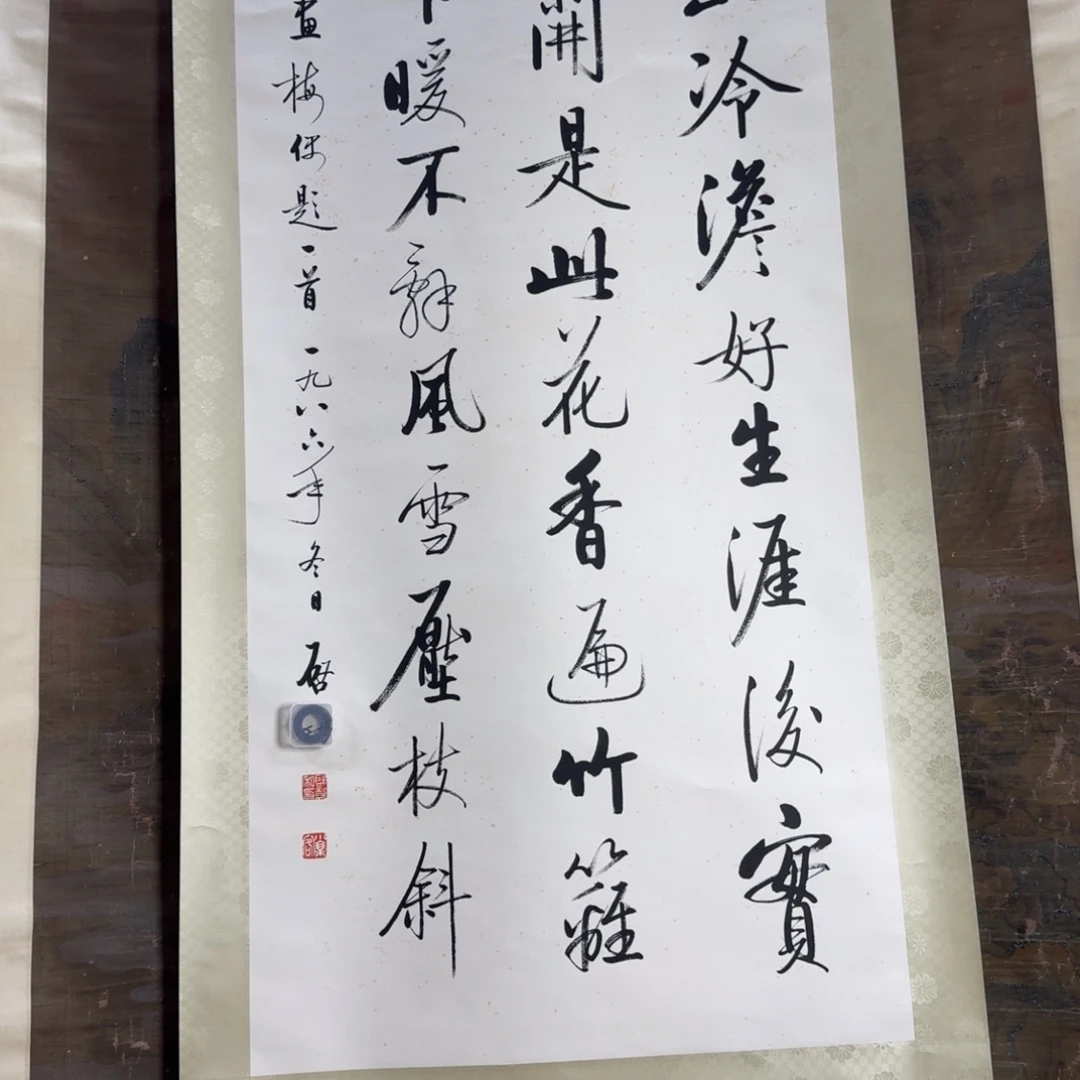 冷澹好生涯後實
開是此花香遍竹籬
暖不辭風雪壓枝斜
畫梅偶題一首 一九八六年冬日 啓